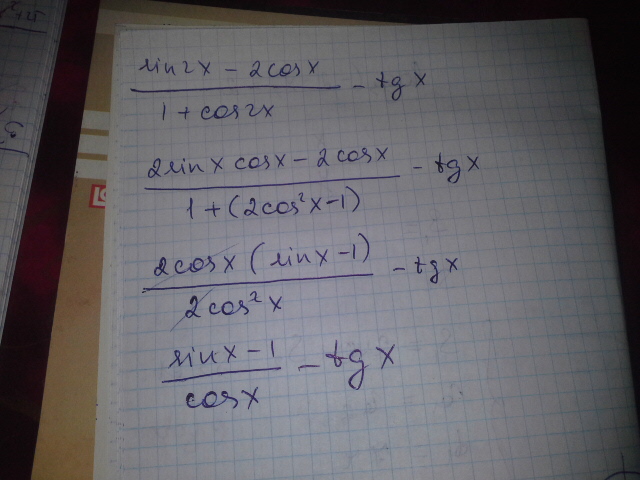 sin2x - 2cosx / 1 + cos2x - tgx
2sinx cosx - 2cosx / 1 + (2cos²x-1) - tgx
2cosx (sinx-1) / 2cos²x - tgx
sinx-1 / cosx - tgx